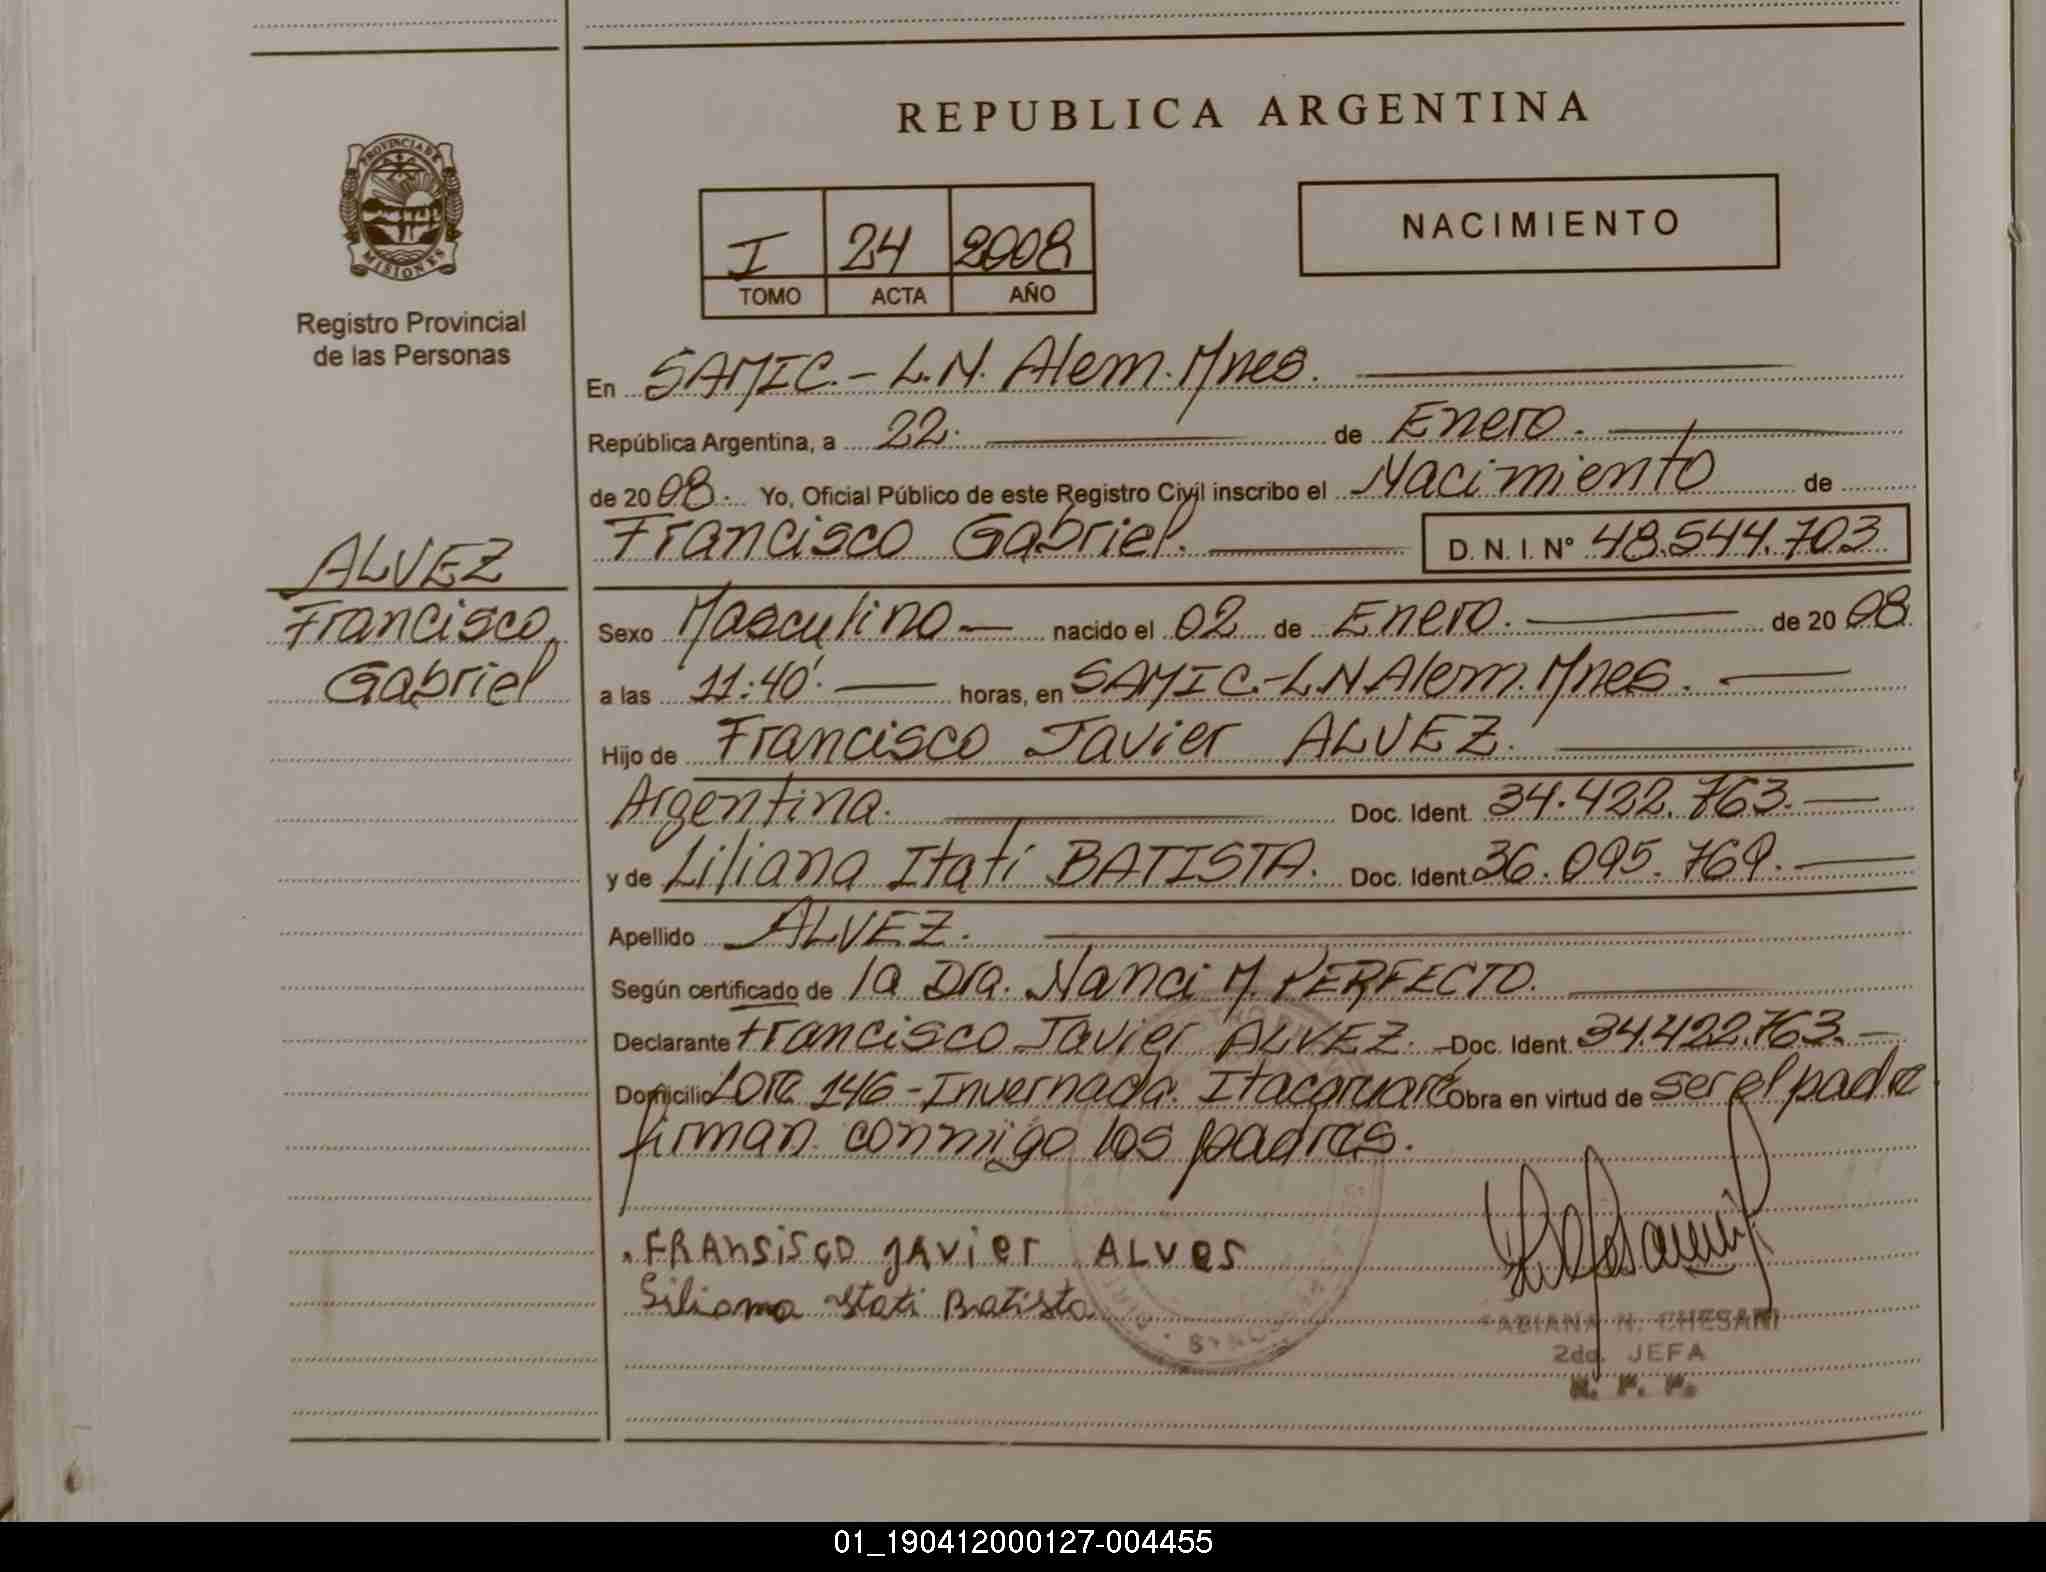 REPUBLICA ARGENTINA
PROVINCIA DE
MISIONES
Registro Provincial
de las Personas
I 24 2008
TOMO ACTA AÑO
NACIMIENTO
En SAMIC.- L.N. Alem. Mnes.
República Argentina, a 22. de Enero.
de 2008. Yo, Oficial Público de este Registro Civil inscribo el Nacimiento de
Francisco Gabriel. D. N. I. N° 48.544.703
ALVEZ
Francisco
Gabriel
Sexo Masculino nacido el 02 de Enero. de 2008
a las 11:40'. horas, en SAMIC.-L.N Alem. Mnes.
Hijo de Francisco Javier ALVEZ.
Argentina. Doc. Ident. 34.422.763.
y de Liliana Itatí BATISTA. Doc. Ident. 36.095.769.
Apellido ALVEZ.
Según certificado de la Dra. Nanci M. PERFECTO.
Declarante Francisco Javier ALVEZ. Doc. Ident. 34.422.763.
Domicilio Lote 146 - Invernada. Itacaruaré Obra en virtud de ser el padre
firman conmigo los padres.
FRAnSisco jAvier ALves
Liliana Itati Batista
FABIANA N. CHESANI
2da. JEFA
R. P. P.
01_190412000127-004455